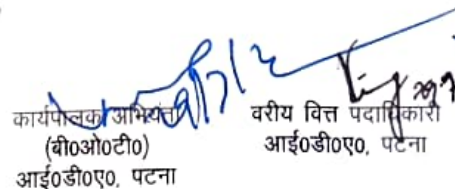 कार्यपालक अभियंता
(बी0ओ0टी0)
आई0डी0ए0, पटना
वरीय वित्त पदाधिकारी
आई0डी0ए0, पटना